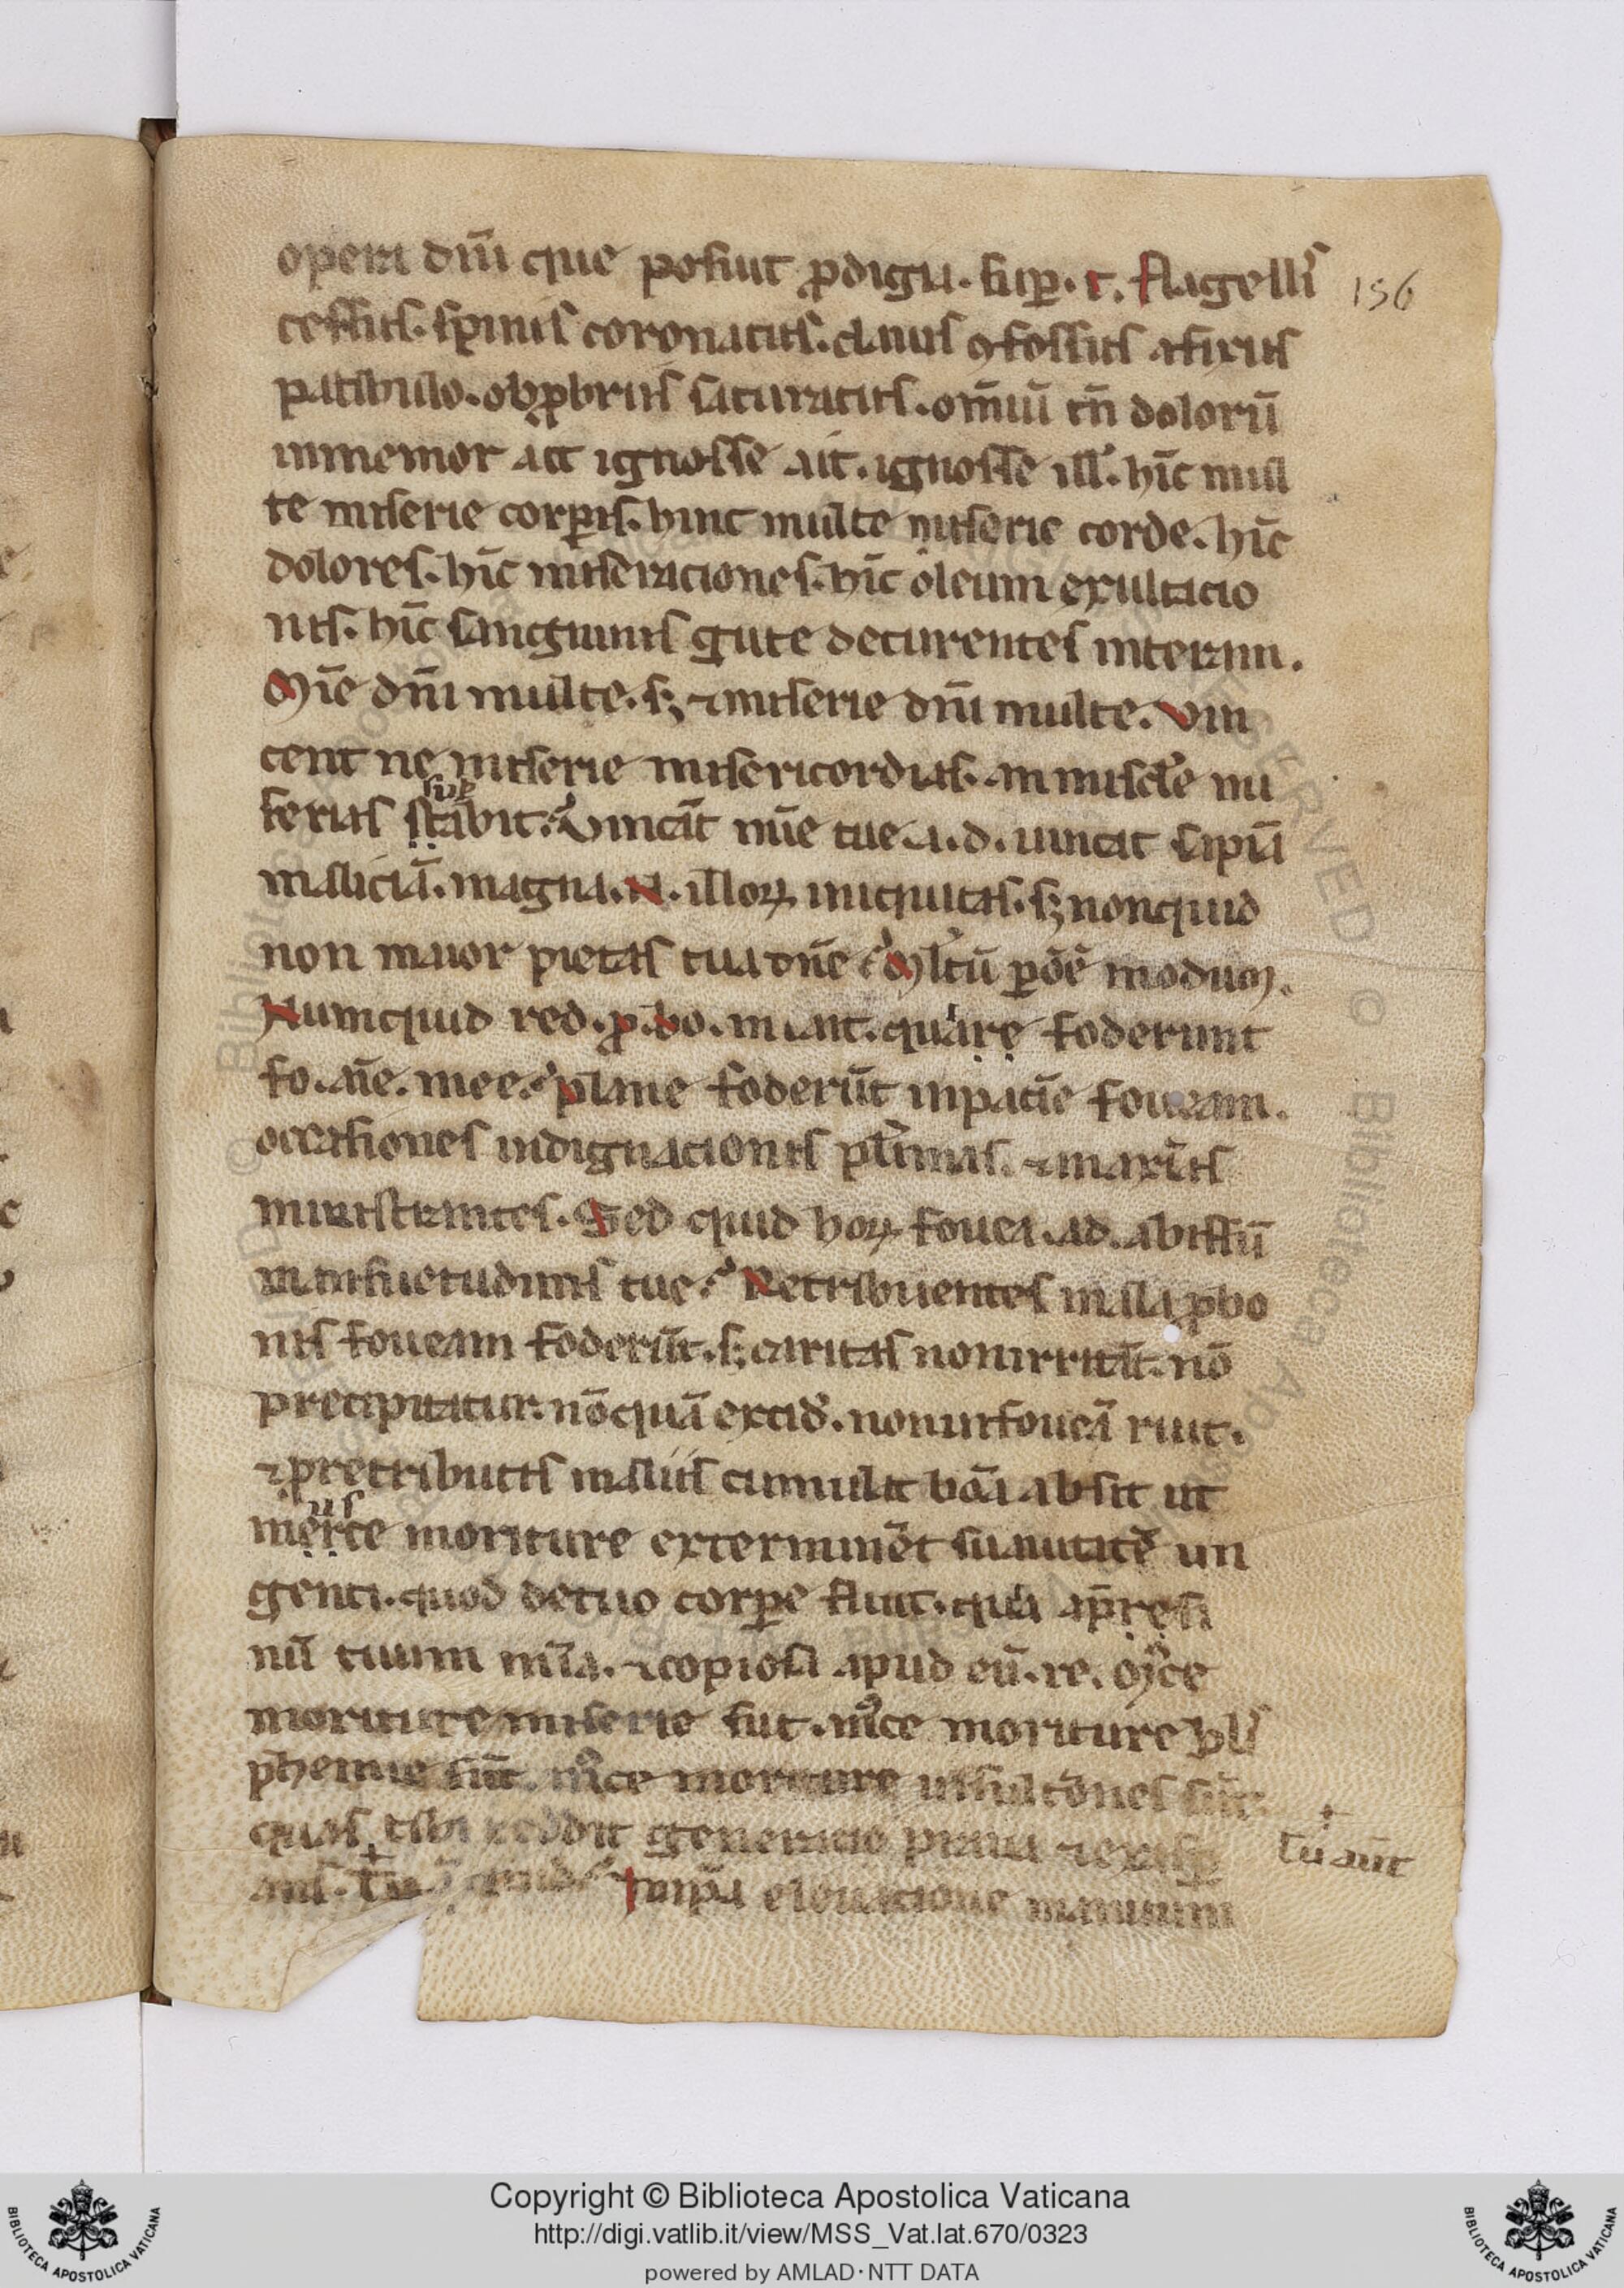 opera dñi que posuit ꝓdigia. suꝑ. t. flagelli᷒
cessus. spinis coronatus. clauis ꝯfossus afixus
patibulo. obꝓbriis saturatus. om̄iū tn̄ dolorū
inmemor ait ignosse ait. ignosse ill᷒. hīc mul
te miserie corꝑis. hinc multe miserie corde. hīc
dolores. hīc miseraciones. hīc oleum exultacio
nis. hīc sanguinis gute decurentes interram.
Mīe dñi multe. sꝫ ⁊ miserie dñi multe. Vin
cent ne miserie misericordias. an miscd'e mi
serias stabit. Vincāt mīe tue. a. d. uincat sapia
maliciā. magna. N. illoꝝ iniquitas. sꝫ nonquid
non maior pietas tua dñe Mltū ꝑ oēꝫ modum.
Numquid red. ꝓ. bo. m ait. quare foderunt
fo. añe. mee. plane foderūt inpaciē foueam.
occasiones indignacionis pl'imas. ⁊ maxīas
ministrantes. Sed quid hoꝝ fouea. ad. abissū
mansuetudinis tue. Retribuentes mala ꝓ bo
nis foueam foderūt. sꝫ caritas nonirritat᷒. nō
precipitatur. nōquā excid᷒. non in foueā ruit.
⁊ pretributis maliis cumulat bōa absit ut
merce moriture exterminēt suauitatē un
genti. quod detuo corꝑe fluit. quia ap̄resi
nū tuum mīa. ⁊ copiosa apud eū. re. M᷒ce
moriture miserie sūt. m᷒ce moriture bl᷒
phemie sūt. m᷒ce moriture insultōnes sūt
quas tibi reddit generacio praua ⁊ exasꝑ
ans. Tu quid Inip̄a eleuacione manuum
156
sup̄
us
+
tu aūt
Copyright © Biblioteca Apostolica Vaticana
http://digi.vatlib.it/view/MSS_Vat.lat.670/0323
powered by AMLAD·NTT DATA
BIBLIOTECA APOSTOLICA VATICANA
BIBLIOTECA APOSTOLICA VATICANA